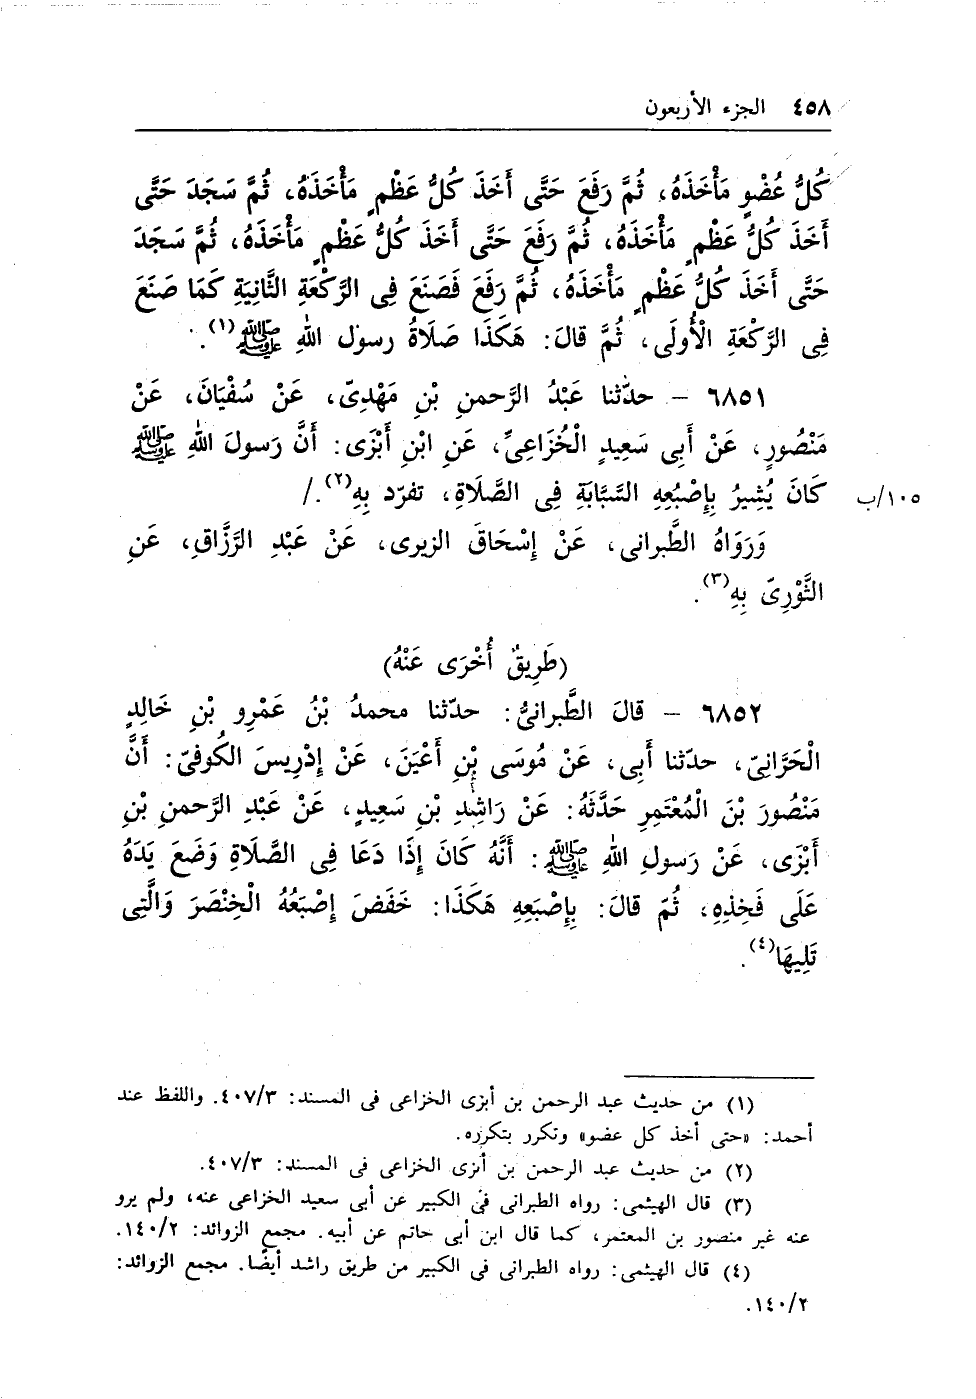 ٤٥٨ الجزء الأربعون
كُلُّ عُضْوٍ مَأْخَذَهُ، ثُمَّ رَفَعَ حَتَّى أَخَذَ كُلُّ عَظْمٍ مَأْخَذَهُ، ثُمَّ سَجَدَ حَتَّى
أَخَذَ كُلُّ عَظْمٍ مَأْخَذَهُ، ثُمَّ رَفَعَ حَتَّى أَخَذَ كُلُّ عَظْمٍ مَأْخَذَهُ، ثُمَّ سَجَدَ
حَتَّى أَخَذَ كُلُّ عَظْمٍ مَأْخَذَهُ، ثُمَّ رَفَعَ فَصَنَعَ فِى الرَّكْعَةِ الثَّانِيَةِ كَمَا صَنَعَ
فِى الرَّكْعَةِ الْأُولَى، ثُمَّ قالَ: هَكَذَا صَلَاةُ رسول اللهِ ﷺ(١).
٦٨٥١ - حدّثنا عَبْدُ الرَّحمنِ بْنِ مَهْدِىّ، عَنْ سُفْيَانَ، عَنْ
مَنْصُورٍ، عَنْ أَبِى سَعِيدٍ الْخُزَاعِىِّ، عَنِ ابْنِ أَبْزَى: أَنَّ رَسولَ اللهِ ﷺ
كَانَ يُشِيرُ بِإِصْبُعِهِ السَّبَّابَةِ فِى الصَّلَاةِ، تفرّد بِهِ(٢)./ ١٠٥/ب
وَرَوَاهُ الطَّبرانى، عَنْ إِسْحَاقَ الزبرى، عَنْ عَبْدِ الرَّزَّاقِ، عَنِ
الثَّوْرِىّ بِهِ(٣).
(طَرِيقٌ أُخْرَى عَنْهُ)
٦٨٥٢ - قالَ الطَّبرانىُّ: حدّثنا محمدُ بْنُ عَمْرِو بْنِ خَالِدٍ
الْحَرَّانِىّ، حدّثنا أَبِى، عَنْ مُوسَى بْنِ أَعْيَنَ، عَنْ إِدْرِيسَ الكُوفىّ: أَنَّ
مَنْصُورَ بْنَ الْمُعْتَمِرِ حَدَّثَهُ: عَنْ رَاشِدِ بْنِ سَعِيدٍ، عَنْ عَبْدِ الرَّحمنِ بْنِ
أَبْزَى، عَنْ رَسولِ اللهِ ﷺ: أَنَّهُ كَانَ إِذَا دَعَا فِى الصَّلَاةِ وَضَعَ يَدَهُ
عَلَى فَخِذِهِ، ثُمّ قالَ: بِإِصْبَعِهِ هَكَذَا: خَفَضَ إِصْبَعُهُ الْخِنْصَرَ وَالَّتِى
تَلِيهَا(٤).
(١) من حديث عبد الرحمن بن أبزى الخزاعى فى المسند: ٤٠٧/٣. واللفظ عند
أحمد: «حتى أخذ كل عضو» وتكرر بتكرره.
(٢) من حديث عبد الرحمن بن أبزى الخزاعى فى المسند: ٤٠٧/٣.
(٣) قال الهيثمى: رواه الطبرانى فى الكبير عن أبى سعيد الخزاعى عنه، ولم يرو
عنه غير منصور بن المعتمر، كما قال ابن أبى حاتم عن أبيه. مجمع الزوائد: ١٤٠/٢.
(٤) قال الهيثمى: رواه الطبرانى فى الكبير من طريق راشد أيضًا. مجمع الزوائد:
١٤٠/٢.